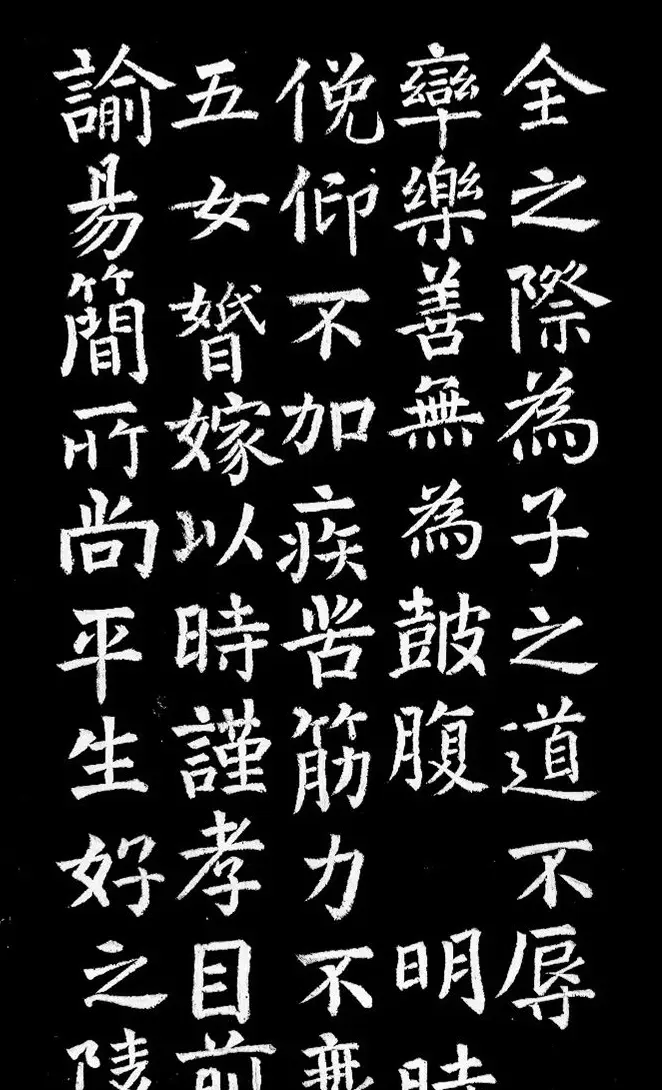 全之際為子之道不辱
樂善無為鼓腹 明時
俛仰不加疾苦筋力不
五女婚嫁以時謹孝目前
諭易簡所尚平生好之